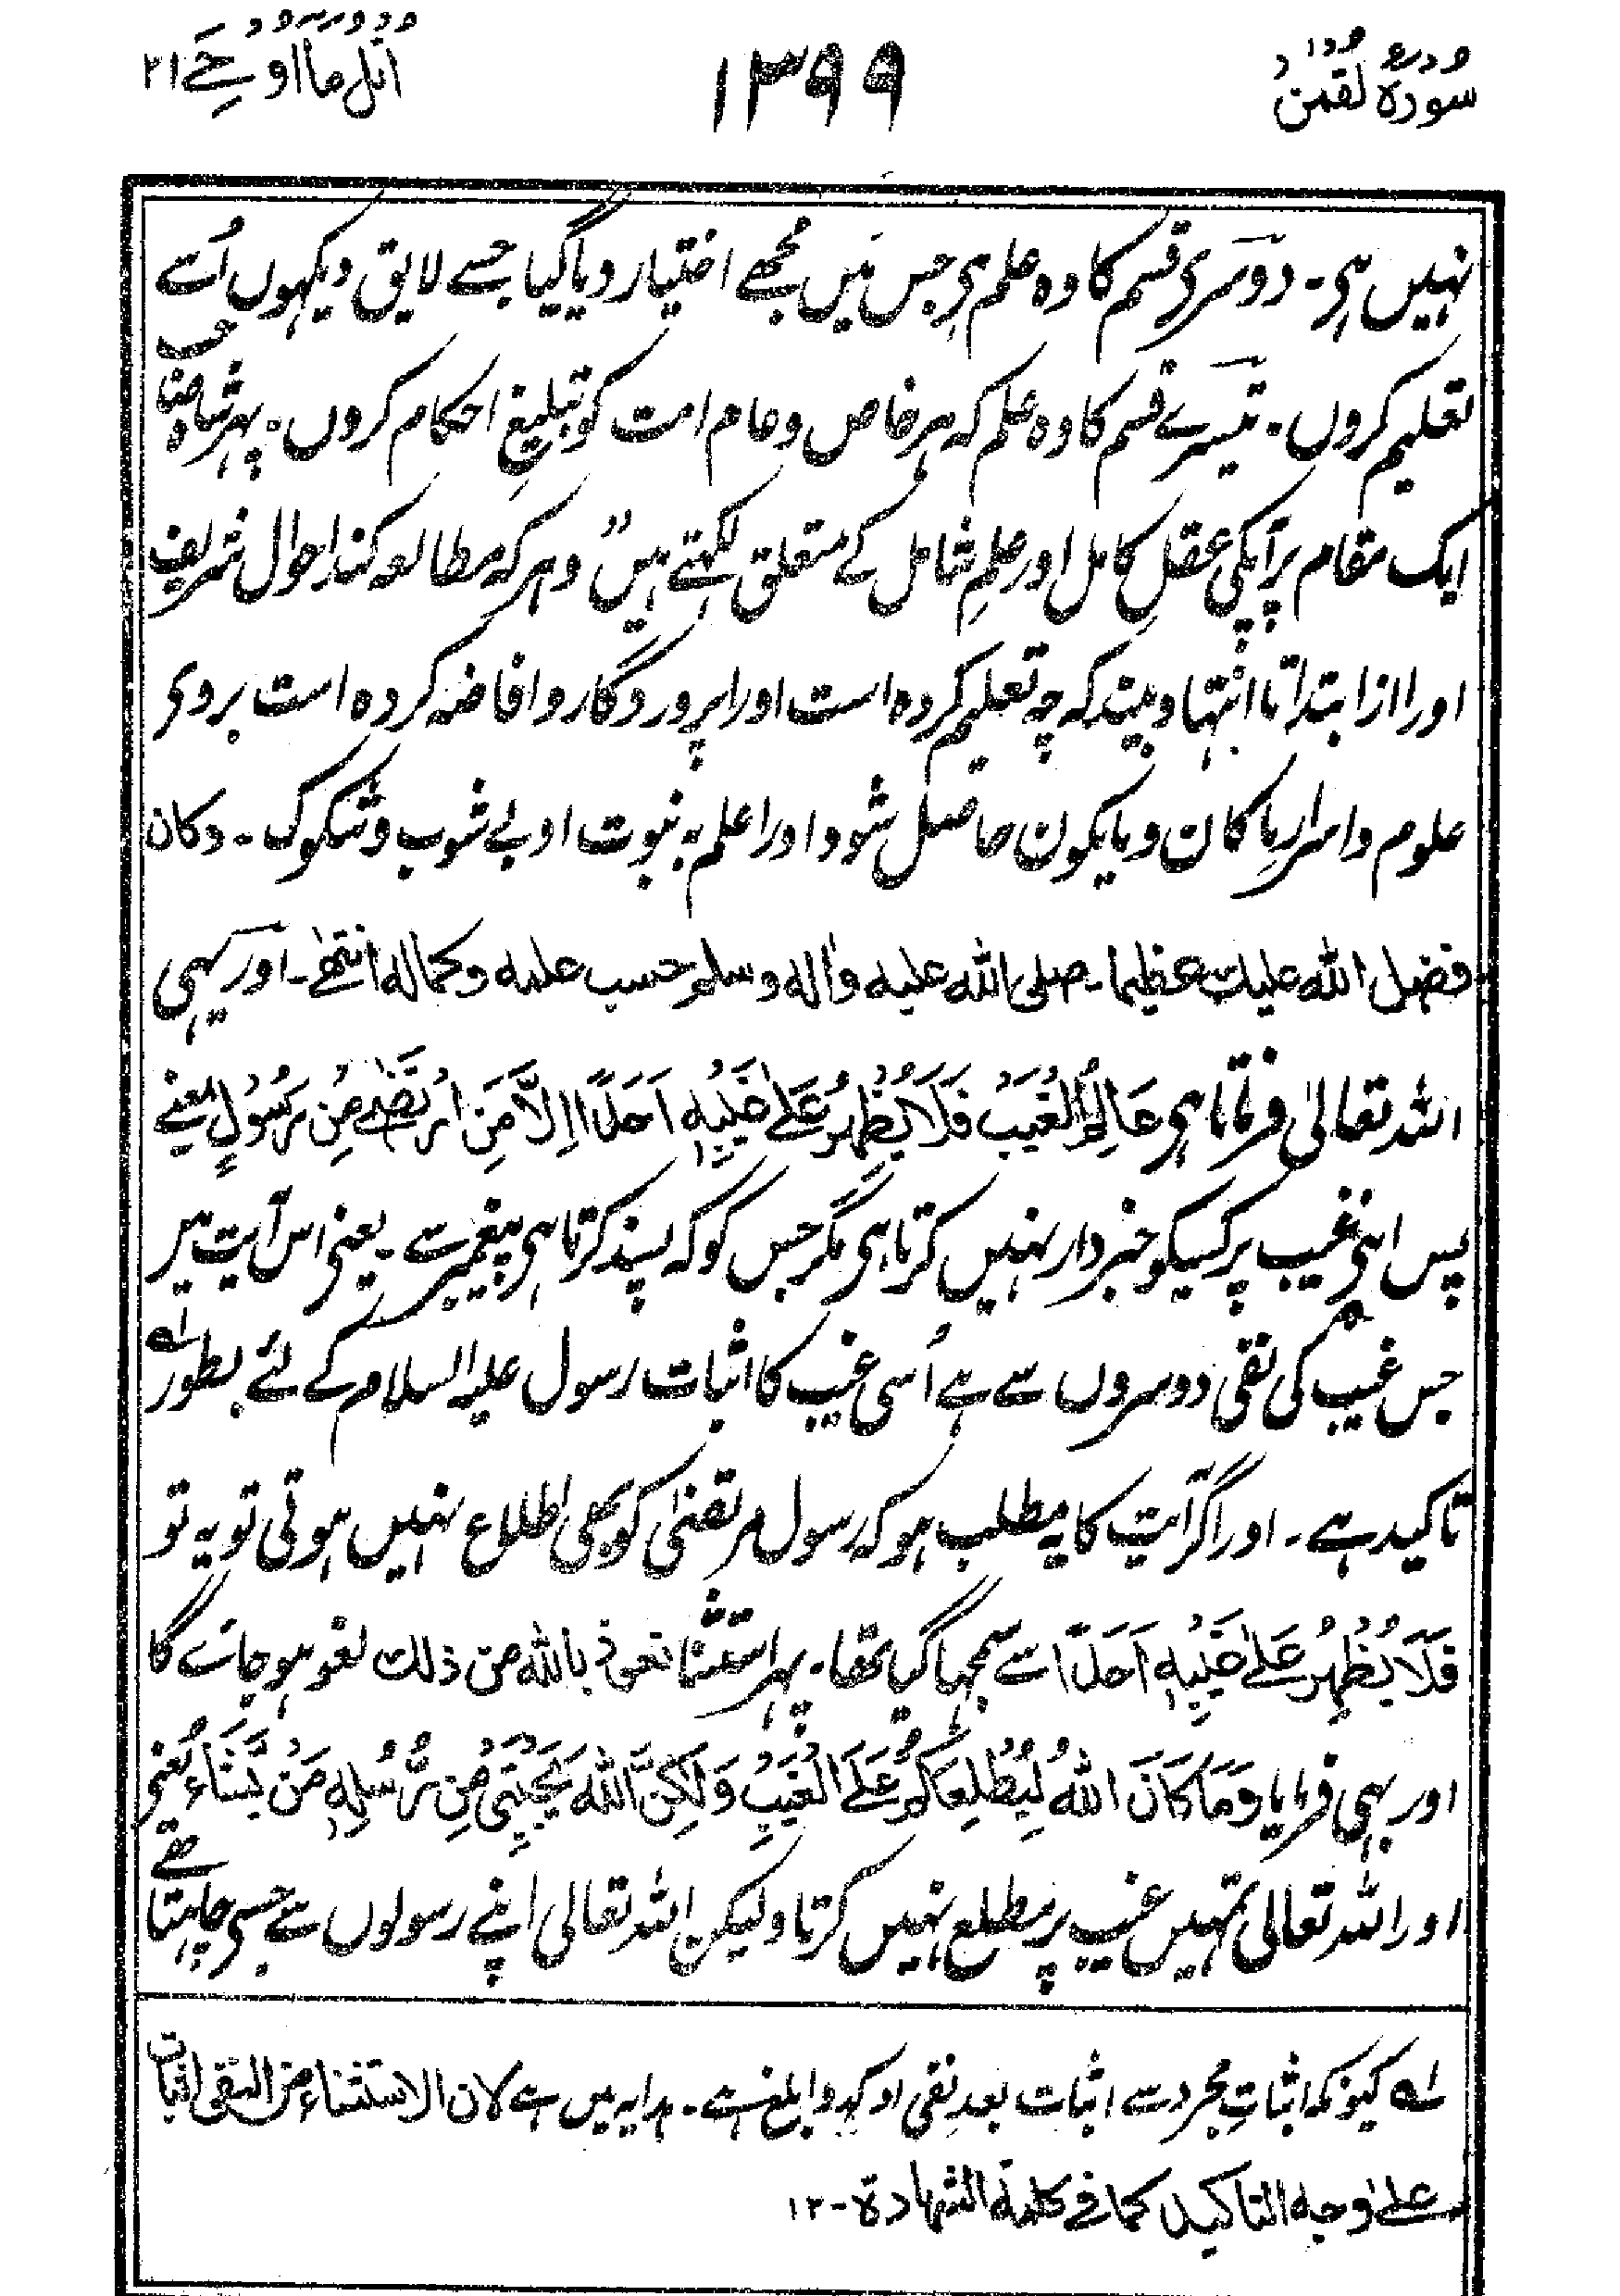 سورة لقمٰن
١٣٩٩
اتل ما اوحی ٢١
نہیں ہی۔ دوسری قسم کا وہ علم ہی جس میں مجھے اختیار دیا گیا جسے لایق دیکہوں اُسے
تعلیم کروں۔ تیسرے قسم کا وہ علم کہ ہر خاص و عام امت کو تبلیغِ احکام کروں۔ پہر شاہ صاحب
ایک مقام پر آپکی عقلِ کامل اور علمِ شامل کے متعلق لکہتے ہیں "وہر کہ مطالعہ کند احوال شریف
اورا از ابتدا تا انتہا و بیند کہ چہ تعلیم کردہ است اورا پروردگار و افاضہ کردہ است بروی
علوم و اسرار ما کان و ما یکون حاصل شود اورا علم بہ نبوت او بے شوب و شکوک۔ وکان
فضل اللہ علیك عظیما۔ صلی اللہ علیہ واٰلہ وسلم حسب علمہ وکمالہ انتھے۔ اور یہی
اللہ تعالیٰ فرماتا ہی عَالِمُ الْغَیْبِ فَلَا یُظْهِرُ عَلٰے غَیْبِهٖ اَحَدًا اِلَّا مَنِ ارْتَضٰے مِنْ رَّسُوْلٍ یعنے
پس اپنی غیب پر کسیکو خبردار نہیں کرتا ہی مگر جس کو کہ پسند کرتا ہی پیغمبر سے۔ یعنی اس آیت میں
جس غیب کی نفی دوسروں سے ہے اُسی غیب کا اثبات رسول علیہ السلام کے لئے بطور لہ
تاکید ہے۔ اور اگر آیت کا یہ مطلب ہو کہ رسول مرتضیٰ کو بھی اطلاع نہیں ہوتی تو یہ تو
فَلَا یُظْهِرُ عَلٰے غَیْبِهٖ اَحَدًا سے سمجہا گیا تھا۔ پہر استثنا نعوذ باللہ من ذلك لغو ہو جائے گا
اور یہی فرمایا وَمَا كَانَ اللهُ لِیُطْلِعَكُمْ عَلَی الْغَیْبِ وَلٰكِنَّ اللهَ یَجْتَبِیْ مِنْ رُّسُلِهٖ مَنْ یَّشَآءُ یعنی
اور اللہ تعالیٰ تمہیں غیب پر مطلع نہیں کرتا ولیکن اللہ تعالی اپنے رسولوں سے جسی چاہتا
لہ کیونکہ اثباتِ مجرد سے اثبات بعد نفی اوکد و ابلغ ہے۔ ہدایہ میں ہے لان الاستثناء من النفی اثبات
علےٰ وجہ التاکید کما فے کلمۃ الشھادۃ۔ ١٢